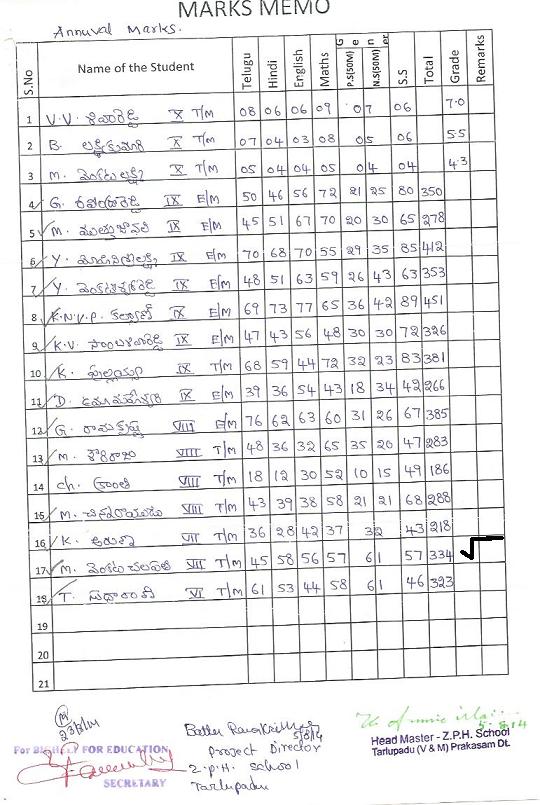 MARKS MEMO
Annuval Marks.
S.No Name of the Student Telugu Hindi English Maths Gen er P.S(50M) N.S(50M) S.S Total Grade Remarks
1 V.V. X T/M 08 06 06 09 07 06 7.0
2 B. లక్ష్మికుమారి X T/M 07 04 03 08 05 06 5.5
3 M. వెంకటలక్ష్మి X T/M 05 04 04 05 04 04 4.3
4 G. IX E/M 50 46 56 72 21 25 80 350
5 M. IX E/M 45 51 67 70 20 30 65 278
6 Y. IX E/M 70 68 70 55 29 35 85 412
7 Y. IX E/M 48 51 63 59 26 43 63 353
8 K.N.V.P. కల్యాణ్ IX E/M 69 73 77 65 36 42 89 451
9 K.V. సాంబశివారెడ్డి IX E/M 47 43 56 48 30 30 72 326
10 K. పుల్లయ్య IX T/M 68 59 44 72 32 23 83 381
11 D. ఉమామహేశ్వరి IX E/M 39 36 54 43 18 34 42 266
12 G. రామకృష్ణ VIII E/M 76 62 63 60 31 26 67 385
13 M. శౌరిరాజు VIII T/M 48 36 32 65 35 20 47 283
14 ch. క్రాంతి VIII T/M 18 12 30 52 10 15 49 186
15 M. చినరాయుడు VIII T/M 43 39 38 58 21 21 68 288
16 K. VII T/M 36 28 42 37 32 43 218
17 M. వెంకట చలపతి VII T/M 45 58 56 57 61 57 334
18 T. VI T/M 61 53 44 58 61 46 323
19
20
21
5/8/14
Project Director
Z.P.H. School
Tarlupadu
For FOR EDUCATION
SECRETARY
5-8-14
Head Master - Z.P.H. School
Tarlupadu (V & M) Prakasam Dt.